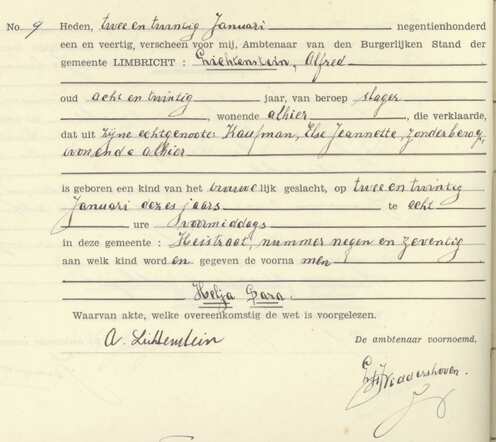 No 9 Heden, twee en twintig Januari negentienhonderd
een en veertig, verscheen voor mij, Ambtenaar van den Burgerlijken Stand der
gemeente LIMBRICHT : Lichtenstein, Alfred
oud acht en twintig jaar, van beroep slager
, wonende alhier , die verklaarde,
dat uit zijne echtgenoote: Kaufman, Else Jeannette, zonder beroep,
wonende alhier
is geboren een kind van het vrouwelijk geslacht, op twee en twintig
Januari dezes jaars te acht
ure voormiddags
in deze gemeente : Heistraat, nummer negen en zeventig
aan welk kind worden gegeven de voornamen
Helja Sara.
Waarvan akte, welke overeenkomstig de wet is voorgelezen.
A. Lichtenstein De ambtenaar voornoemd.